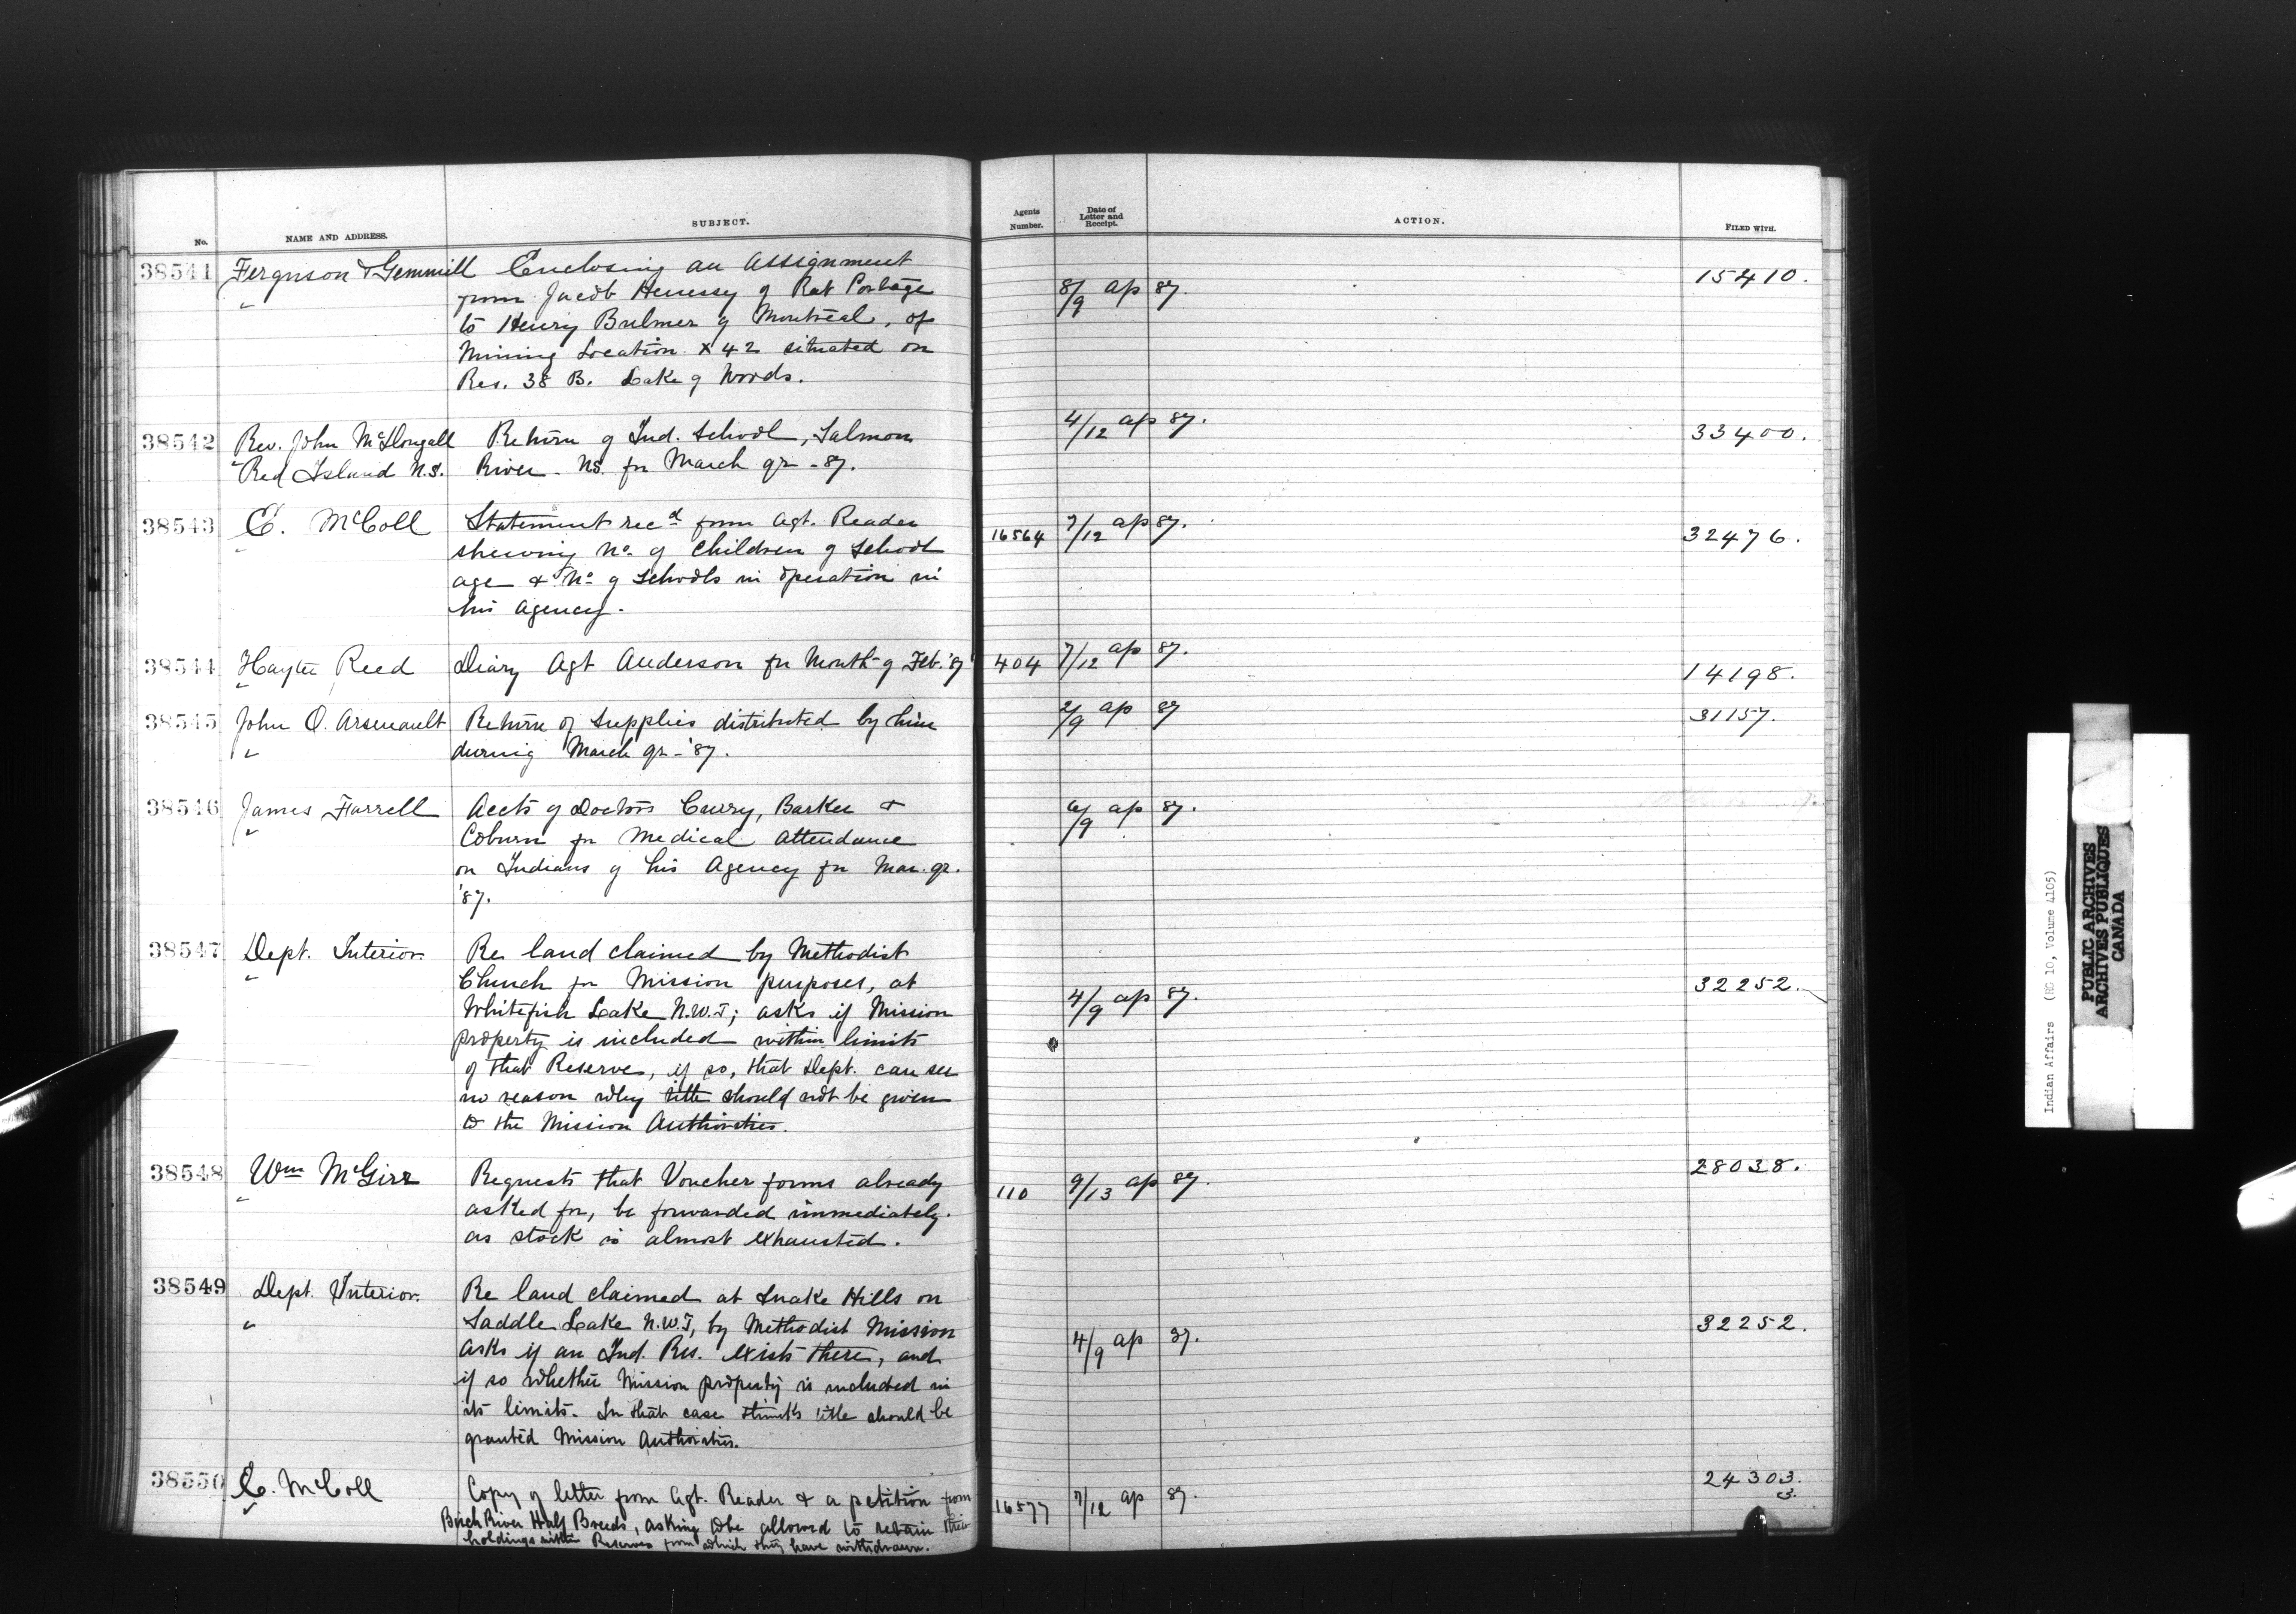 No. NAME AND ADDRESS. SUBJECT. Agents Number. Date of Letter and Receipt. ACTION. FILED WITH.
38541 Ferguson & Gemmill Enclosing an Assignment 15410.
" from Jacob Henessy of Rat Portage 8/9 ap 87.
to Henry Bulmer of Montreal, of
Mining Location X42 situated on
Res. 38 B. Lake of Woods.
38542 Rev. John McDougall Return of Ind. School, Salmon 4/12 ap 87. 33400.
Red Island N.S. River N.S. for March qr - 87.
38543 E. McColl Statement recd from Agt. Reader 16564 7/12 ap 87. 32476.
shewing No. of children of School
age & No. of Schools in operation in
his Agency.
38544 Hayter Reed Diary Agt Anderson for Month of Feb. '87 404 7/12 ap 87. 14198.
38545 John O. Arsenault Return of Supplies distributed by him 2/9 ap 87 31157.
" during March qr - '87.
38546 James Farrell Accts of Doctors Curry, Barker & 6/9 ap 87.
" Coburn for Medical attendance
on Indians of his Agency for Mar. qr.
'87.
38547 Dept. Interior Re land claimed by Methodist
" Church for Mission purposes, at 32252.
Whitefish Lake N.W.T; asks if Mission 4/9 ap 87.
property is included within limits
of that Reserve, if so, that Dept. can see
no reason why title should not be given
to the Mission Authorities.
38548 Wm McGirr Requests that Voucher forms already 110 9/13 ap 87. 28038.
" asked for, be forwarded immediately
as stock is almost exhausted.
38549 Dept. Interior. Re land claimed at Snake Hills on
" Saddle Lake N.W.T, by Methodist Mission 4/9 ap 87. 32252.
asks if an Ind. Res. exists there, and
if so whether Mission property is included in
its limits. In that case thinks title should be
granted Mission Authorities.
38550 E. McColl Copy of letter from Agt. Reader & a petition from 16577 7/12 ap 87. 24303.
" Birch River Half Breeds, asking to be allowed to retain their 3.
holdings within Reserves from which they have withdrawn.
Indian Affairs (RG 10, Volume 4105)
PUBLIC ARCHIVES
ARCHIVES PUBLIQUES
CANADA